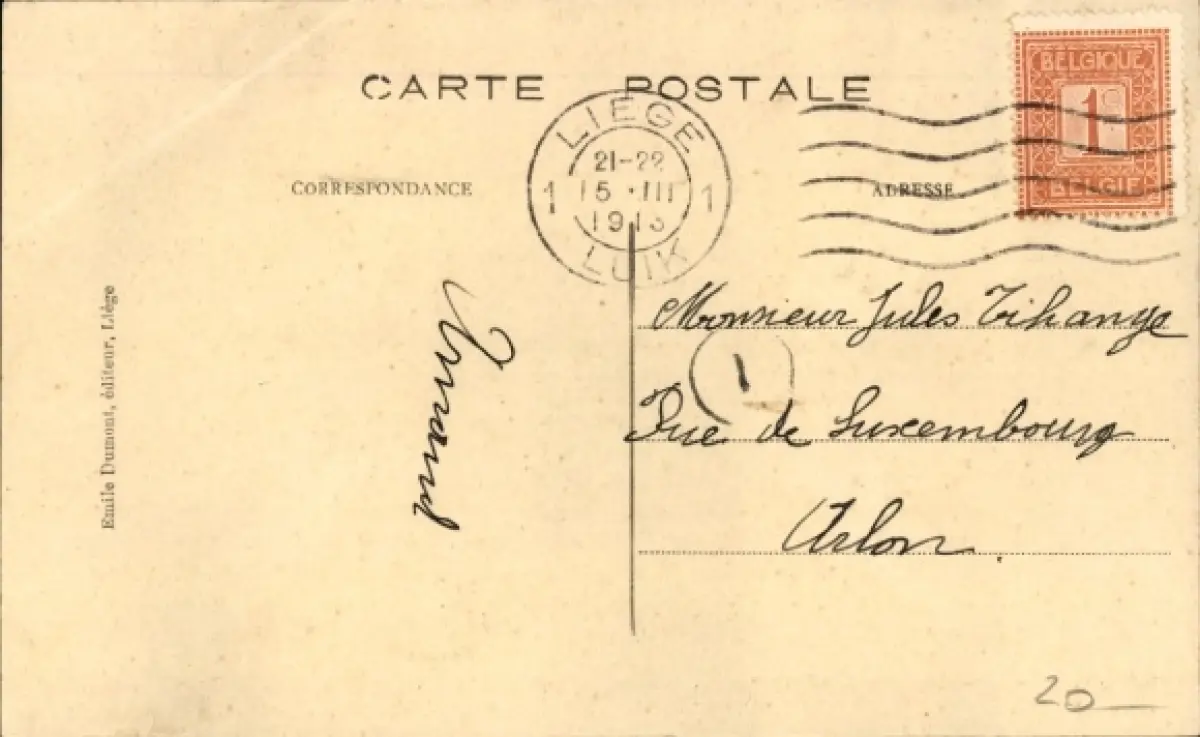 CARTE POSTALE
BELGIQUE
1c
BELGIE
LIÉGE
21-22
1 15 · III 1
1913
LUIK
CORRESPONDANCE
ADRESSE
Emile Dumont, éditeur, Liége
Armand
Monsieur Jules Tihange
1
Rue de Luxembourg
Arlon
20